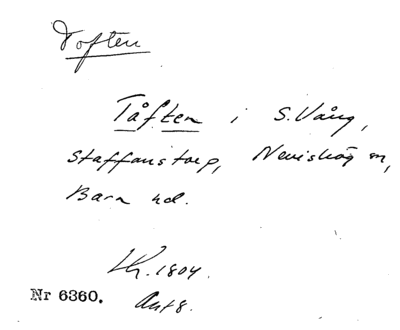 Toften
Tåften i S. Vång,
Staffanstorp, Nevishög sn,
Bara hd.
Lh. 1804.
Nr 6360. Akt 8.